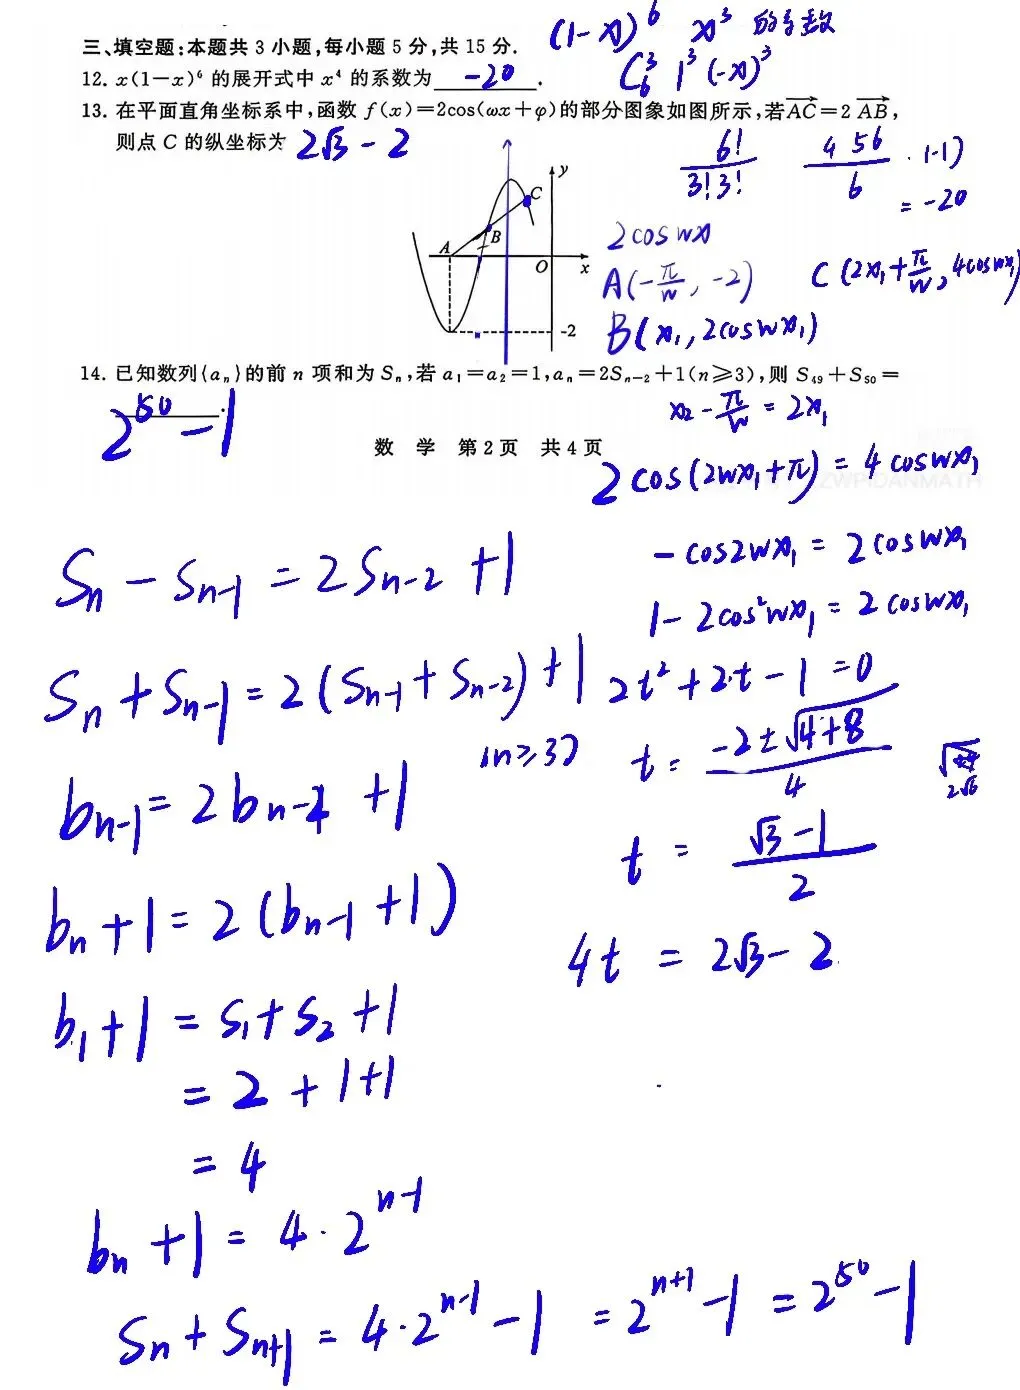 三、填空题:本题共 3 小题,每小题 5 分,共 15 分.
(1-x)^6 x^3 的系数
12. x(1-x)^6 的展开式中 x^4 的系数为 -20 .
C_6^3 1^3 (-x)^3
13. 在平面直角坐标系中,函数 f(x)=2cos(ωx+φ)的部分图象如图所示,若 AC=2 AB,
则点 C 的纵坐标为 2√3 - 2
6!/3!3! 4 5 6/6 · (-1)
= -20
y
C
B
A
O
x
-2
2cos wx
A(-π/w, -2) C(2x_1+π/w, 4cos wx_1)
B(x_1, 2cos wx_1)
14. 已知数列{a_n}的前 n 项和为 S_n,若 a_1=a_2=1,a_n=2S_{n-2}+1(n≥3),则 S_49+S_50=
2^50 - 1 .
x_2 - π/w = 2x_1
数 学 第 2 页 共 4 页
2cos(2wx_1+π) = 4cos wx_1
-cos2wx_1 = 2cos wx_1
1-2cos^2wx_1 = 2cos wx_1
2t^2+2t-1=0
t = (-2±√(4+8))/4
t = (√3-1)/2
4t = 2√3-2
S_n - S_{n-1} = 2S_{n-2} +1
S_n + S_{n-1} = 2(S_{n-1}+S_{n-2})+1
(n≥3)
b_{n-1} = 2b_{n-2} +1
b_n+1 = 2(b_{n-1}+1)
b_1+1 = S_1+S_2+1
= 2+1+1
= 4
b_n+1 = 4·2^{n-1}
S_n+S_{n+1} = 4·2^{n-1}-1 = 2^{n+1}-1 = 2^50-1